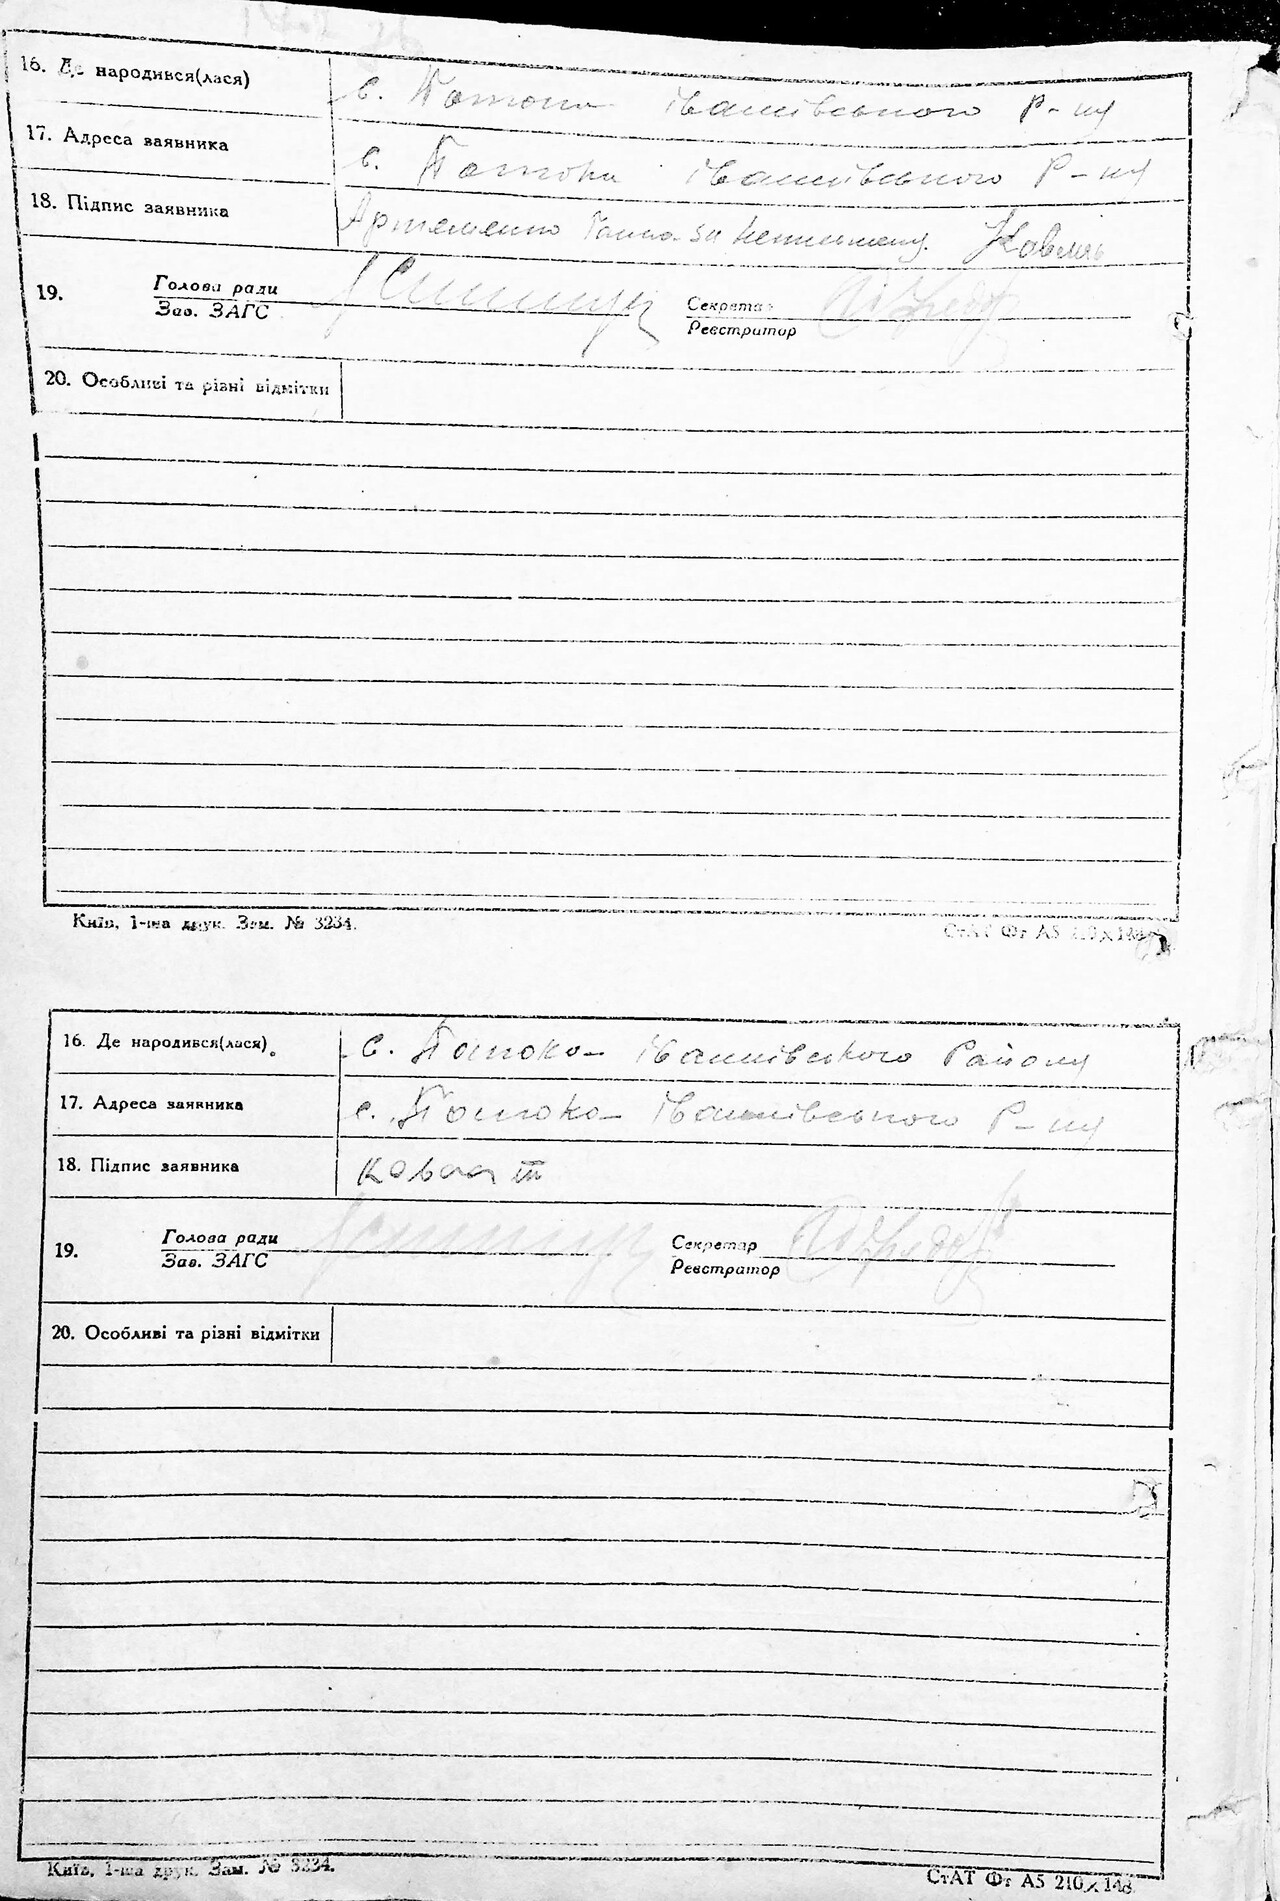 16. Де народився(лася) с. Потоки Івашківського Р-ну
17. Адреса заявника с. Потоки Івашківського Р-ну
18. Підпис заявника Артеменко Ганна за неписьмену
19. Голова ради Секретар
Зав. ЗАГС Реєстратор
20. Особливі та різні відмітки
Київ, 1-ша друк. Зам. № 3234. СтАТ Фт А5 210×148
16. Де народився(лася) с. Потоки Івашківського Району
17. Адреса заявника с. Потоки Івашківського Р-ну
18. Підпис заявника
19. Голова ради Секретар
Зав. ЗАГС Реєстратор
20. Особливі та різні відмітки
Київ, 1-ша друк. Зам. № 3234. СтАТ Фт А5 210×148